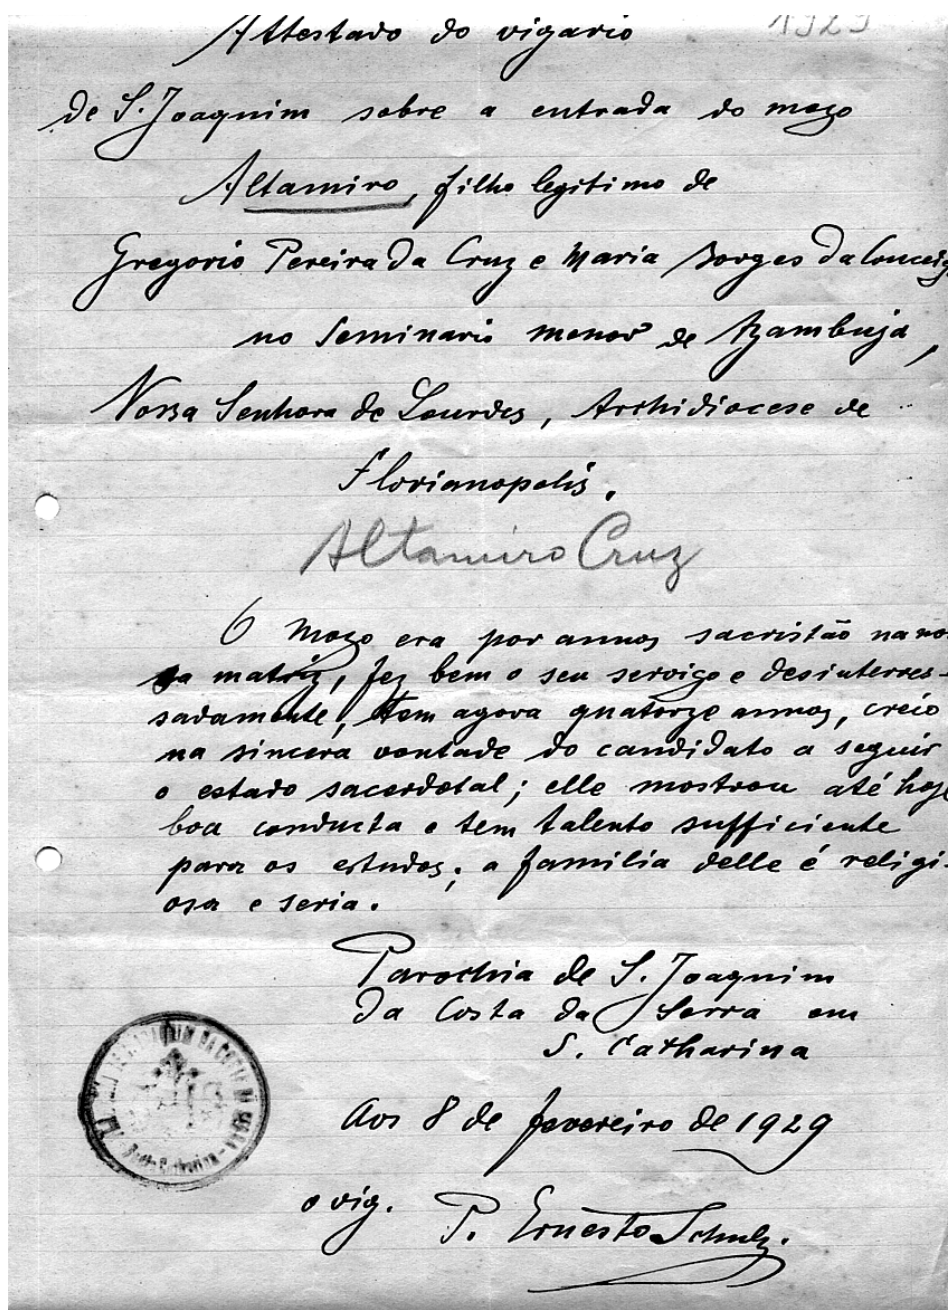 1929
Attestado do vigario
de S. Joaquim sobre a entrada do moço
Altamiro, filho legitimo de
Gregorio Pereira da Cruz e Maria Borges da Conceiç
no Seminario menor de Azambuja,
Nossa Senhora de Lourdes, Archidiocese de
Florianopolis.
Altamiro Cruz
O moço era por annos sacristão na nos
sa matriz, fez bem o seu serviço e desinteres-
sadamente, tem agora quatorze annos, creio
na sincera vontade do candidato a seguir
o estado sacerdotal; elle mostrou até hoje
boa conducta e tem talento sufficiente
para os estudos; a familia delle é religi-
osa e seria.
Parochia de S. Joaquim
da Costa da Serra em
S. Catharina
Aos 8 de fevereiro de 1929
o vig. P. Ernesto Schulz.
JOAQUIM DA COSTA DA SERRA
Santa Catharina